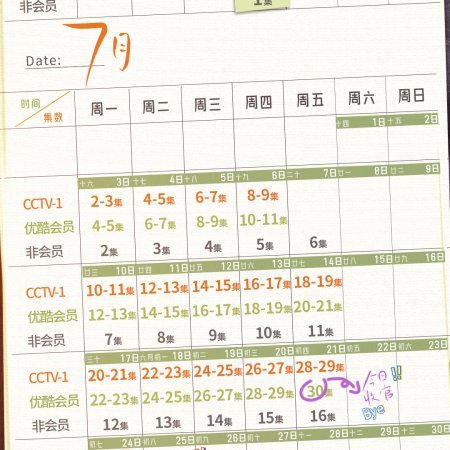 非会员 1集
Date: 7月
时间 集数 周一 周二 周三 周四 周五 周六 周日
十四 1日 十五 2日
十六 3日 十七 4日 十八 5日 十九 6日 二十 7日 廿一 8日 廿二 9日
CCTV-1 2-3集 4-5集 6-7集 8-9集
优酷会员 4-5集 6-7集 8-9集 10-11集
非会员 2集 3集 4集 5集 6集
廿三 10日 廿四 11日 廿五 12日 廿六 13日 廿七 14日 廿八 15日 廿九 16日
CCTV-1 10-11集 12-13集 14-15集 16-17集 18-19集
优酷会员 12-13集 14-15集 16-17集 18-19集 20-21集
非会员 7集 8集 9集 10集 11集
三十 17日 六月初一 18日 初二 19日 初三 20日 初四 21日 初五 22日 初六 23日
CCTV-1 20-21集 22-23集 24-25集 26-27集 28-29集 今日!!
优酷会员 22-23集 24-25集 26-27集 28-29集 30集 收官
非会员 12集 13集 14集 15集 16集 Bye
初七 24日 初八 25日 初九 26日 初十 27日 十一 28日 十二 29日 十三 30日